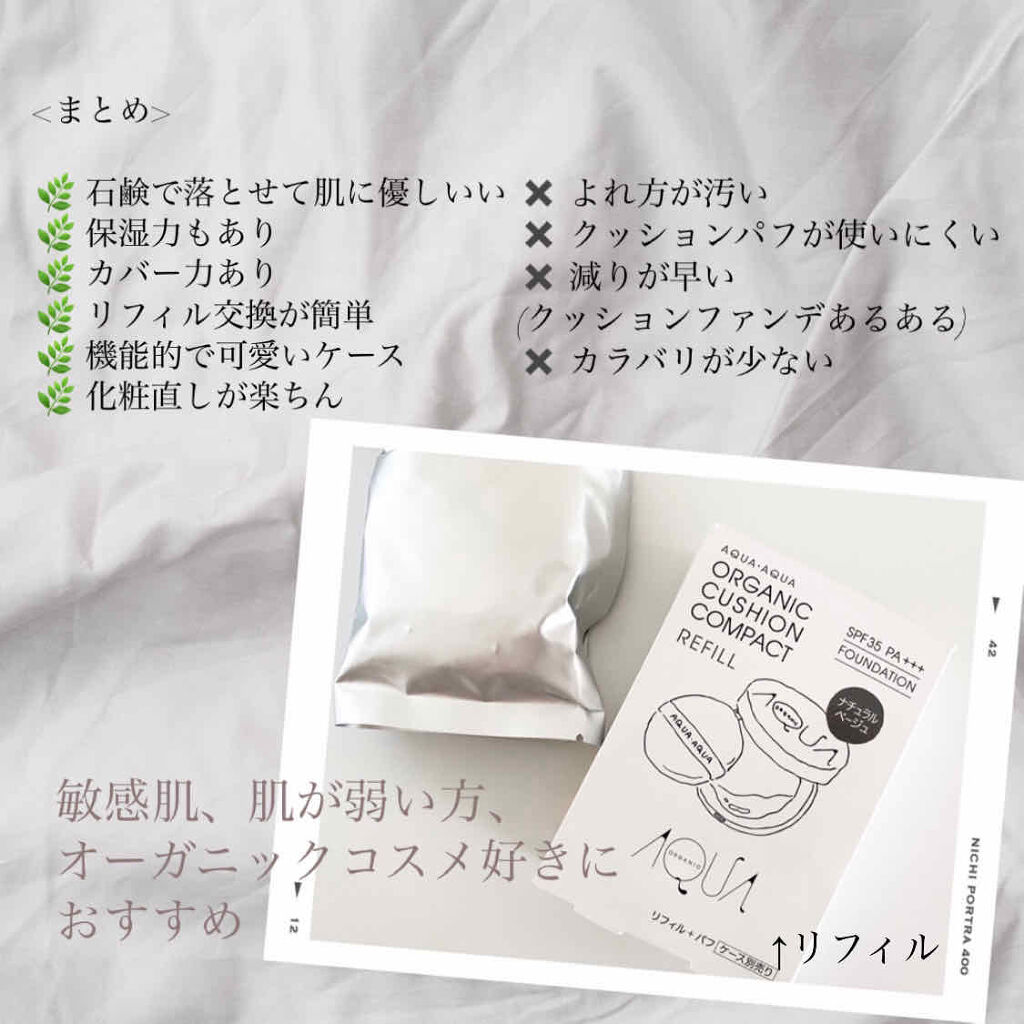 <まとめ>
石鹸で落とせて肌に優しいい
保湿力もあり
カバー力あり
リフィル交換が簡単
機能的で可愛いケース
化粧直しが楽ちん
✖ よれ方が汚い
✖ クッションパフが使いにくい
✖ 減りが早い
(クッションファンデあるある)
✖ カラバリが少ない
AQUA・AQUA
ORGANIC
CUSHION
COMPACT
REFILL
SPF35 PA+++
FOUNDATION
ナチュラル
ベージュ
ORGANIC
AQUA
AQUA・AQUA
ORGANIC
AQUA
リフィル+パフ ケース別売り
↑リフィル
敏感肌、肌が弱い方、
オーガニックコスメ好きに
おすすめ
42
12
NICHI PORTRA 400